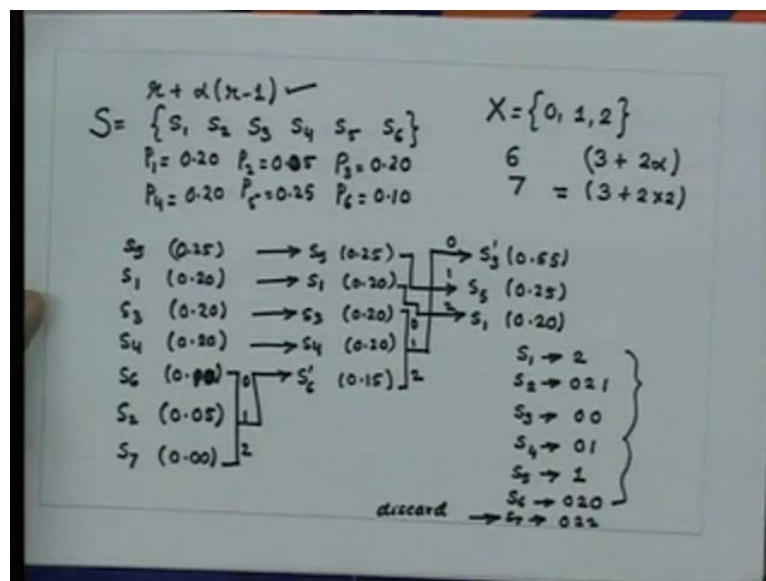 r + α(r-1) ✓
S = {S₁ S₂ S₃ S₄ S₅ S₆}
P₁ = 0.20 P₂ = 0.05 P₃ = 0.20
P₄ = 0.20 P₅ = 0.25 P₆ = 0.10
X = {0, 1, 2}
6 (3 + 2α)
7 = (3 + 2×2)
S₅ (0.25) → S₅ (0.25) 0 → S₃' (0.55)
S₁ (0.20) → S₁ (0.20) 1 → S₅ (0.25)
S₃ (0.20) → S₃ (0.20) 0 2 → S₁ (0.20)
S₄ (0.20) → S₄ (0.20) 1
S₆ (0.10) 0 → S₆' (0.15) 2
S₂ (0.05) 1
S₇ (0.00) 2
S₁ → 2
S₂ → 021
S₃ → 00
S₄ → 01
S₅ → 1
S₆ → 020
discard → S₇ → 022